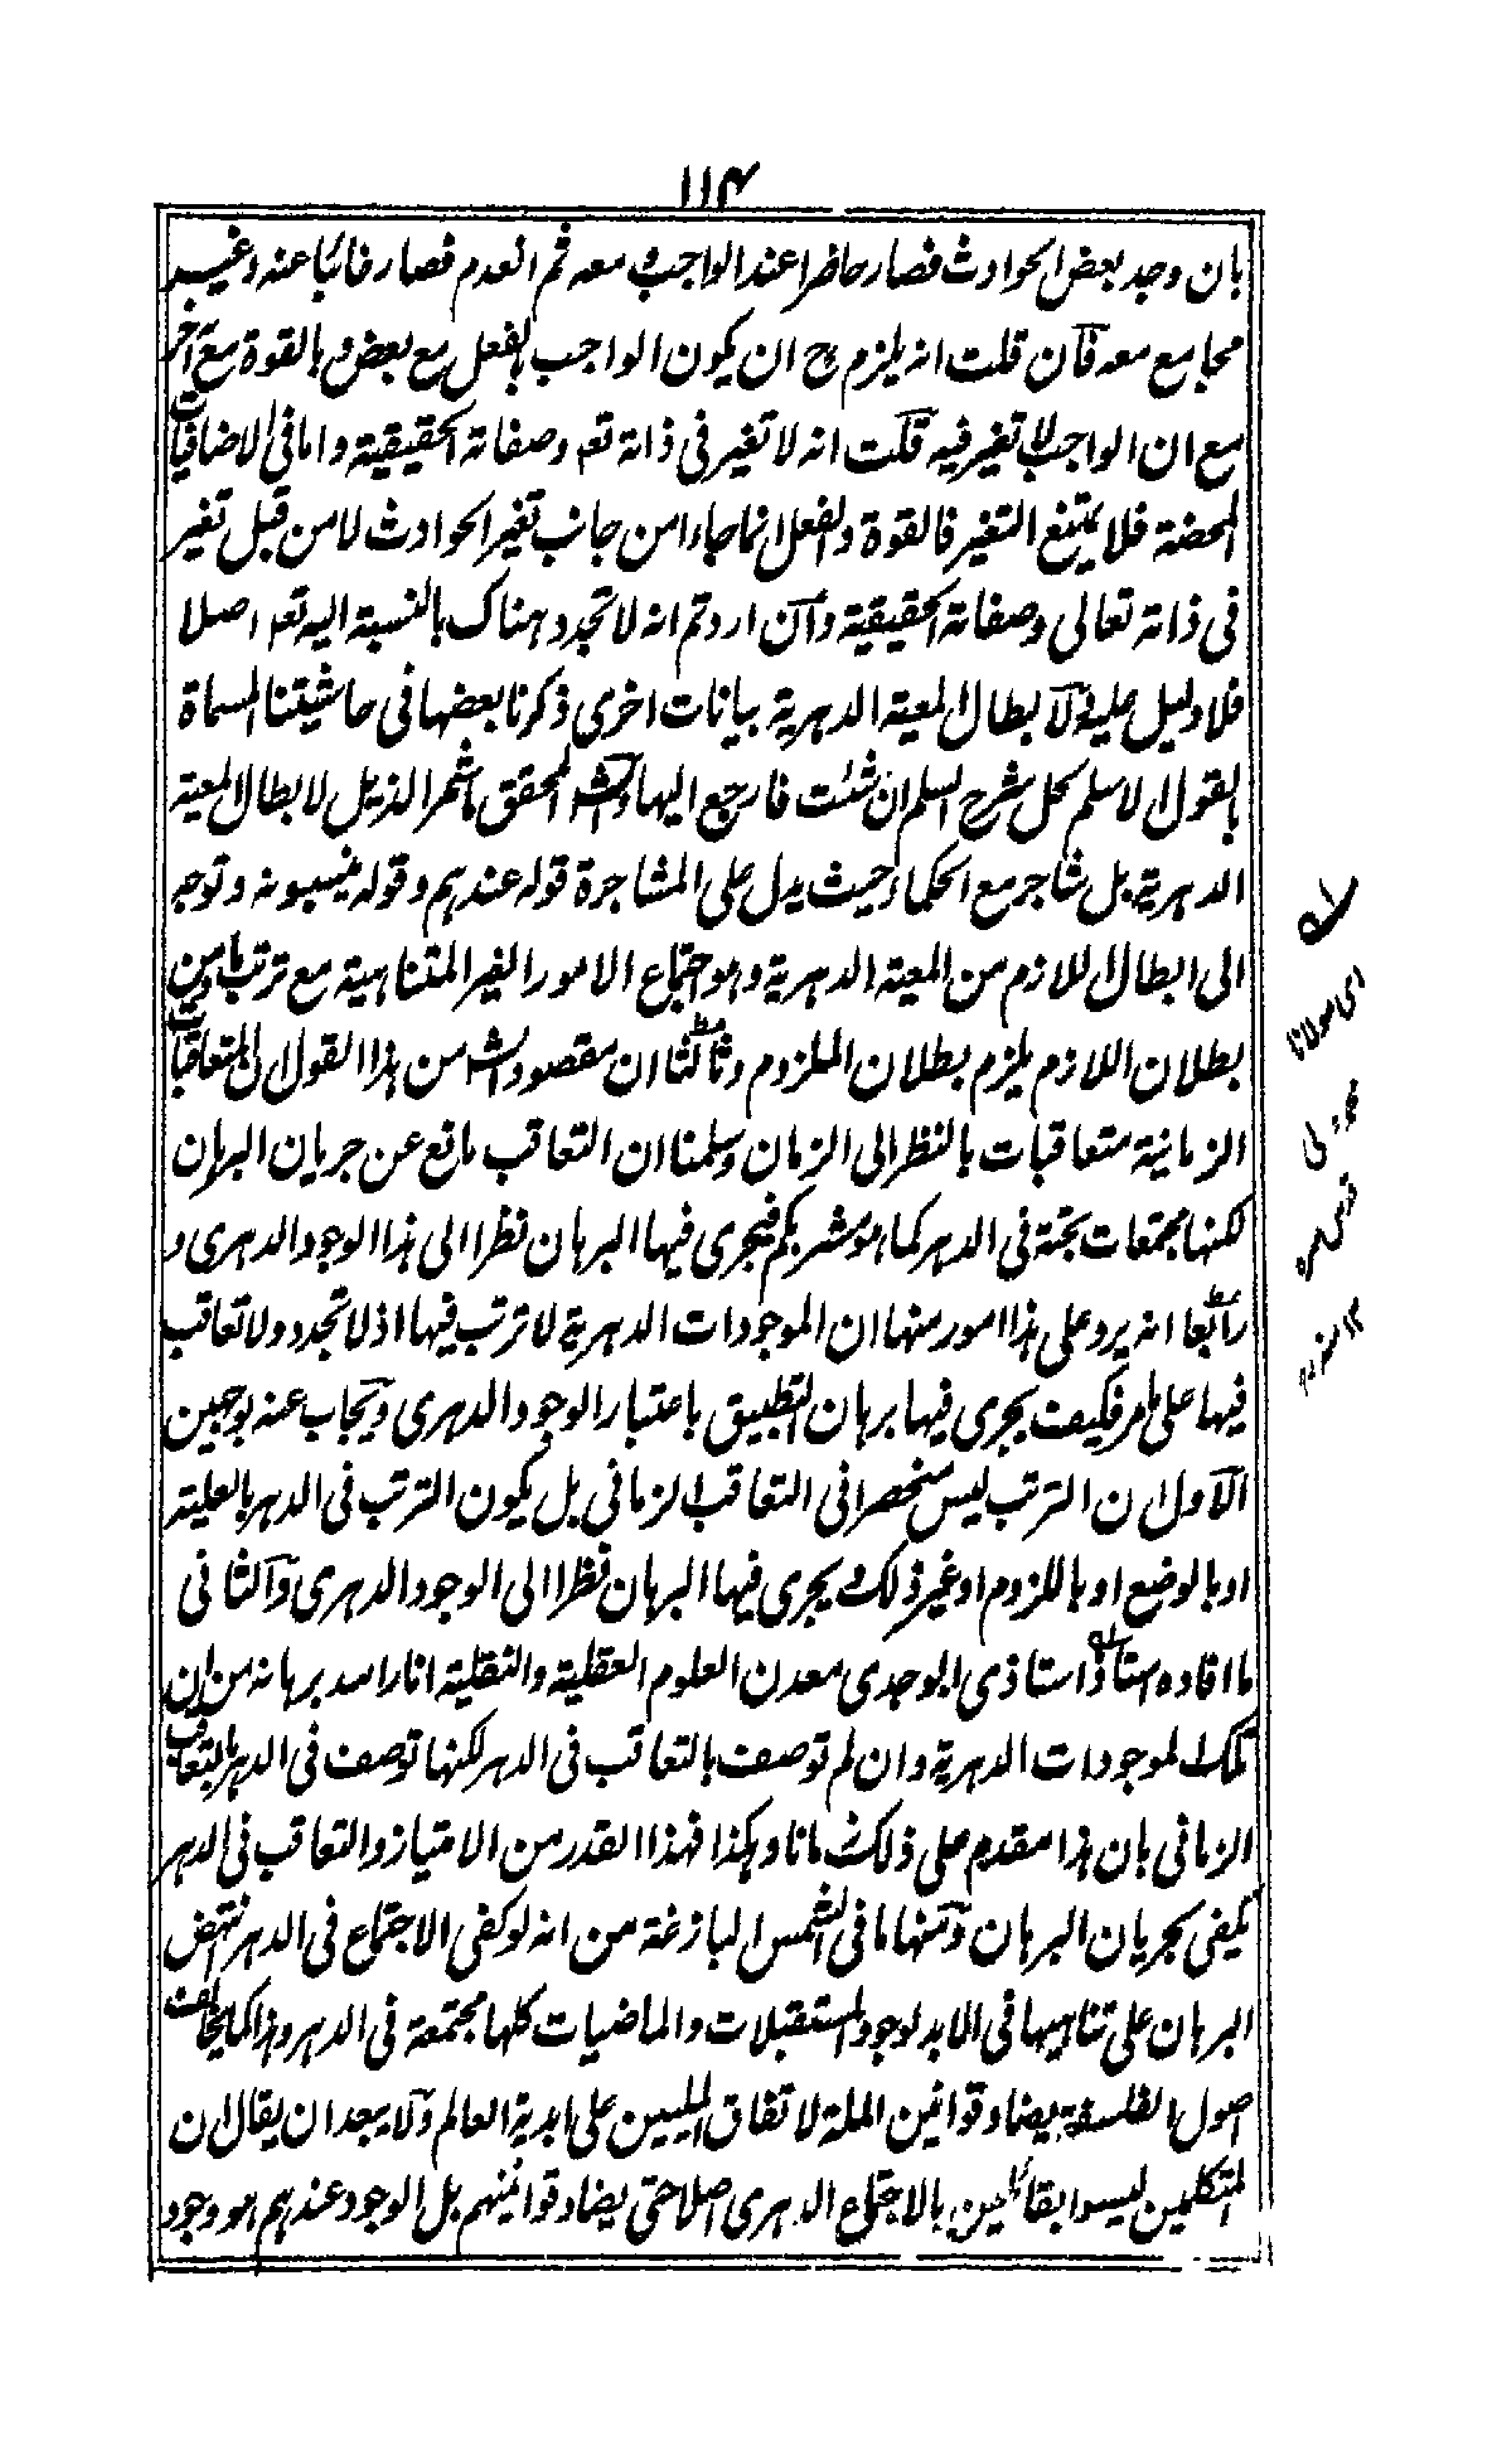 ١١٤
بان وجد بعض الحوادث فصار حاضرا عند الواجب و معه ثم انعدم فصار غائبا عنه وغير
مجامع معه فان قلت انه يلزم ح ان يكون الواجب بالفعل مع بعض و بالقوة مع آخر
مع ان الواجب لا تغير فيه قلت انه لا تغير فى ذاته تعم وصفاته الحقيقية واما فى الاضافيات
المحضة فلا يمتنع التغير فالقوة والفعل انما جاءا من جانب تغير الحوادث لا من قبل تغير
فى ذاته تعالى وصفاته الحقيقية وان اردتم انه لا تجدد هناك بالنسبة اليه تعم اصلا
فلا دليل عليه ولابطال المعية الدهرية بيانات اخرى ذكرنا بعضها فى حاشيتنا المسماة
بالقول الاسلم لحل شرح السلم ان شئت فارجع اليها والشم المحقق ما شمر الذيل لابطال المعية
الدهرية بل شاجر مع الحكماء حيث يدل على المشاجرة قوله عندهم وقوله ينسبونه وتوجه
الى ابطال اللازم من المعية الدهرية وهو اجتماع الامور الغير المتناهية مع ترتبها ومن
بطلان اللازم يلزم بطلان الملزوم وثالثا ان مقصود الشم من هذا القول ان المتعاقبات
الزمانية متعاقبات بالنظر الى الزمان وسلمنا ان التعاقب مانع عن جريان البرهان
لكنها مجتمعات بحتة فى الدهر كما هو مشربكم فيجرى فيها البرهان نظرا الى هذا الوجود الدهرى و
رابعا انه يرد على هذا امور منها ان الموجودات الدهرية لا ترتب فيها اذ لا تجدد ولا تعاقب
فيها على ما مر فكيف يجرى فيها برهان التطبيق باعتبار الوجود الدهرى ويجاب عنه بوجهين
الاول ان الترتب ليس منحصرا فى التعاقب الزمانى بل يكون الترتب فى الدهر بالعلية
او بالوضع او باللزوم او غير ذلك و يجرى فيها البرهان نظرا الى الوجود الدهرى والثانى
ما افاده استاذ استاذى ابو جدى معدن العلوم العقلية والنقلية انار الله برهانه من ان
تلك الموجودات الدهرية وان لم توصف بالتعاقب فى الدهر لكنها توصف فى الدهر بالتعاقب
الزمانى بان هذا مقدم على ذلك زمانا وهكذا فهذا القدر من الامتياز والتعاقب فى الدهر
يكفى لجريان البرهان ومنها ما فى الشمس البازغة من انه لو كفى الاجتماع فى الدهر لنتهض
البرهان على تناهيها فى الابد لوجود المستقبلات والماضيات كلها مجتمعة فى الدهر وهذا كما يخالف
اصول الفلسفة يضاد قوانين الملة لاتفاق المليين على ابدية العالم ولا يبعد ان يقال ان
المتكلمين ليسوا بقائلين بالاجتماع الدهرى اصلا حتى يضاد قوانينهم بل الوجود عندهم هو وجود
اى مولانا
قدس سره
١٢ منه